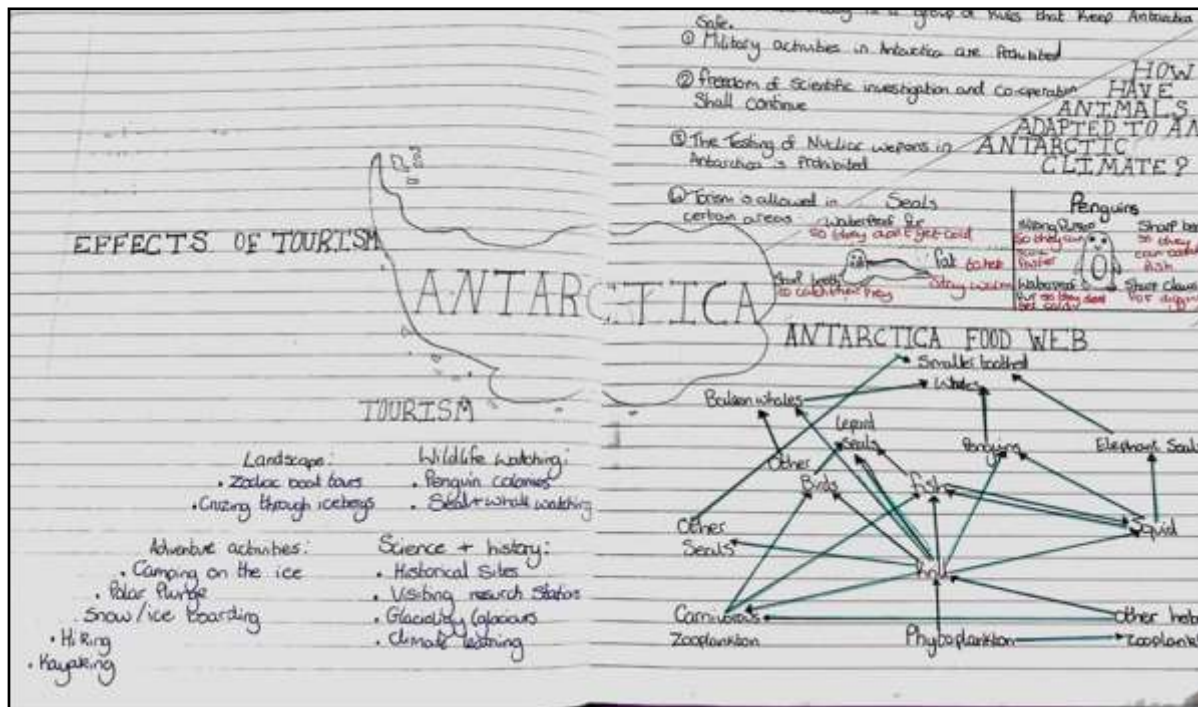 EFFECTS OF TOURISM
ANTARCTICA
TOURISM
Landscape:
• Zodiac boat tours
• Cruzing through icebergs
Wildlife Watching:
• Penguin colonies
• Seal + whale watching
Adventure activities:
• Camping on the ice
• Polar Plunge
Snow/ice boarding
• Hiking
• Kayaking
Science + history:
• Historical Sites
• Visiting research Station
•
• Climate learning
is a group of Rules that Keep Antarctica
Safe.
① Military activities in Antarctica are Prohibited
② Freedom of scientific investigation and co-operation
Shall continue
③ The Testing of Nuclear wepons in
Antarctica is Prohibited
is allowed in
certain areas
HOW
HAVE
ANIMALS
ADAPTED TO AN
ANTARCTIC
CLIMATE?
Seals
Waterproof fur
so they don't get cold
fat to help
stay warm
Sharp teeth
to catch their prey
Penguins
Strong
so they can
faster
Sharp
so they
can catch
fish
Waterproof
fur so they dont
get cold
Sharp claws
for
ANTARCTICA FOOD WEB
Smaller toothed
Whales
Baleen whales
Lepard
Seals
Penguins
Elephant Seals
Other
Birds
Fish
Other
Seals
Squid
Krill
Carnivorous
Zooplankton
Phytoplankton
Other
Zooplankt